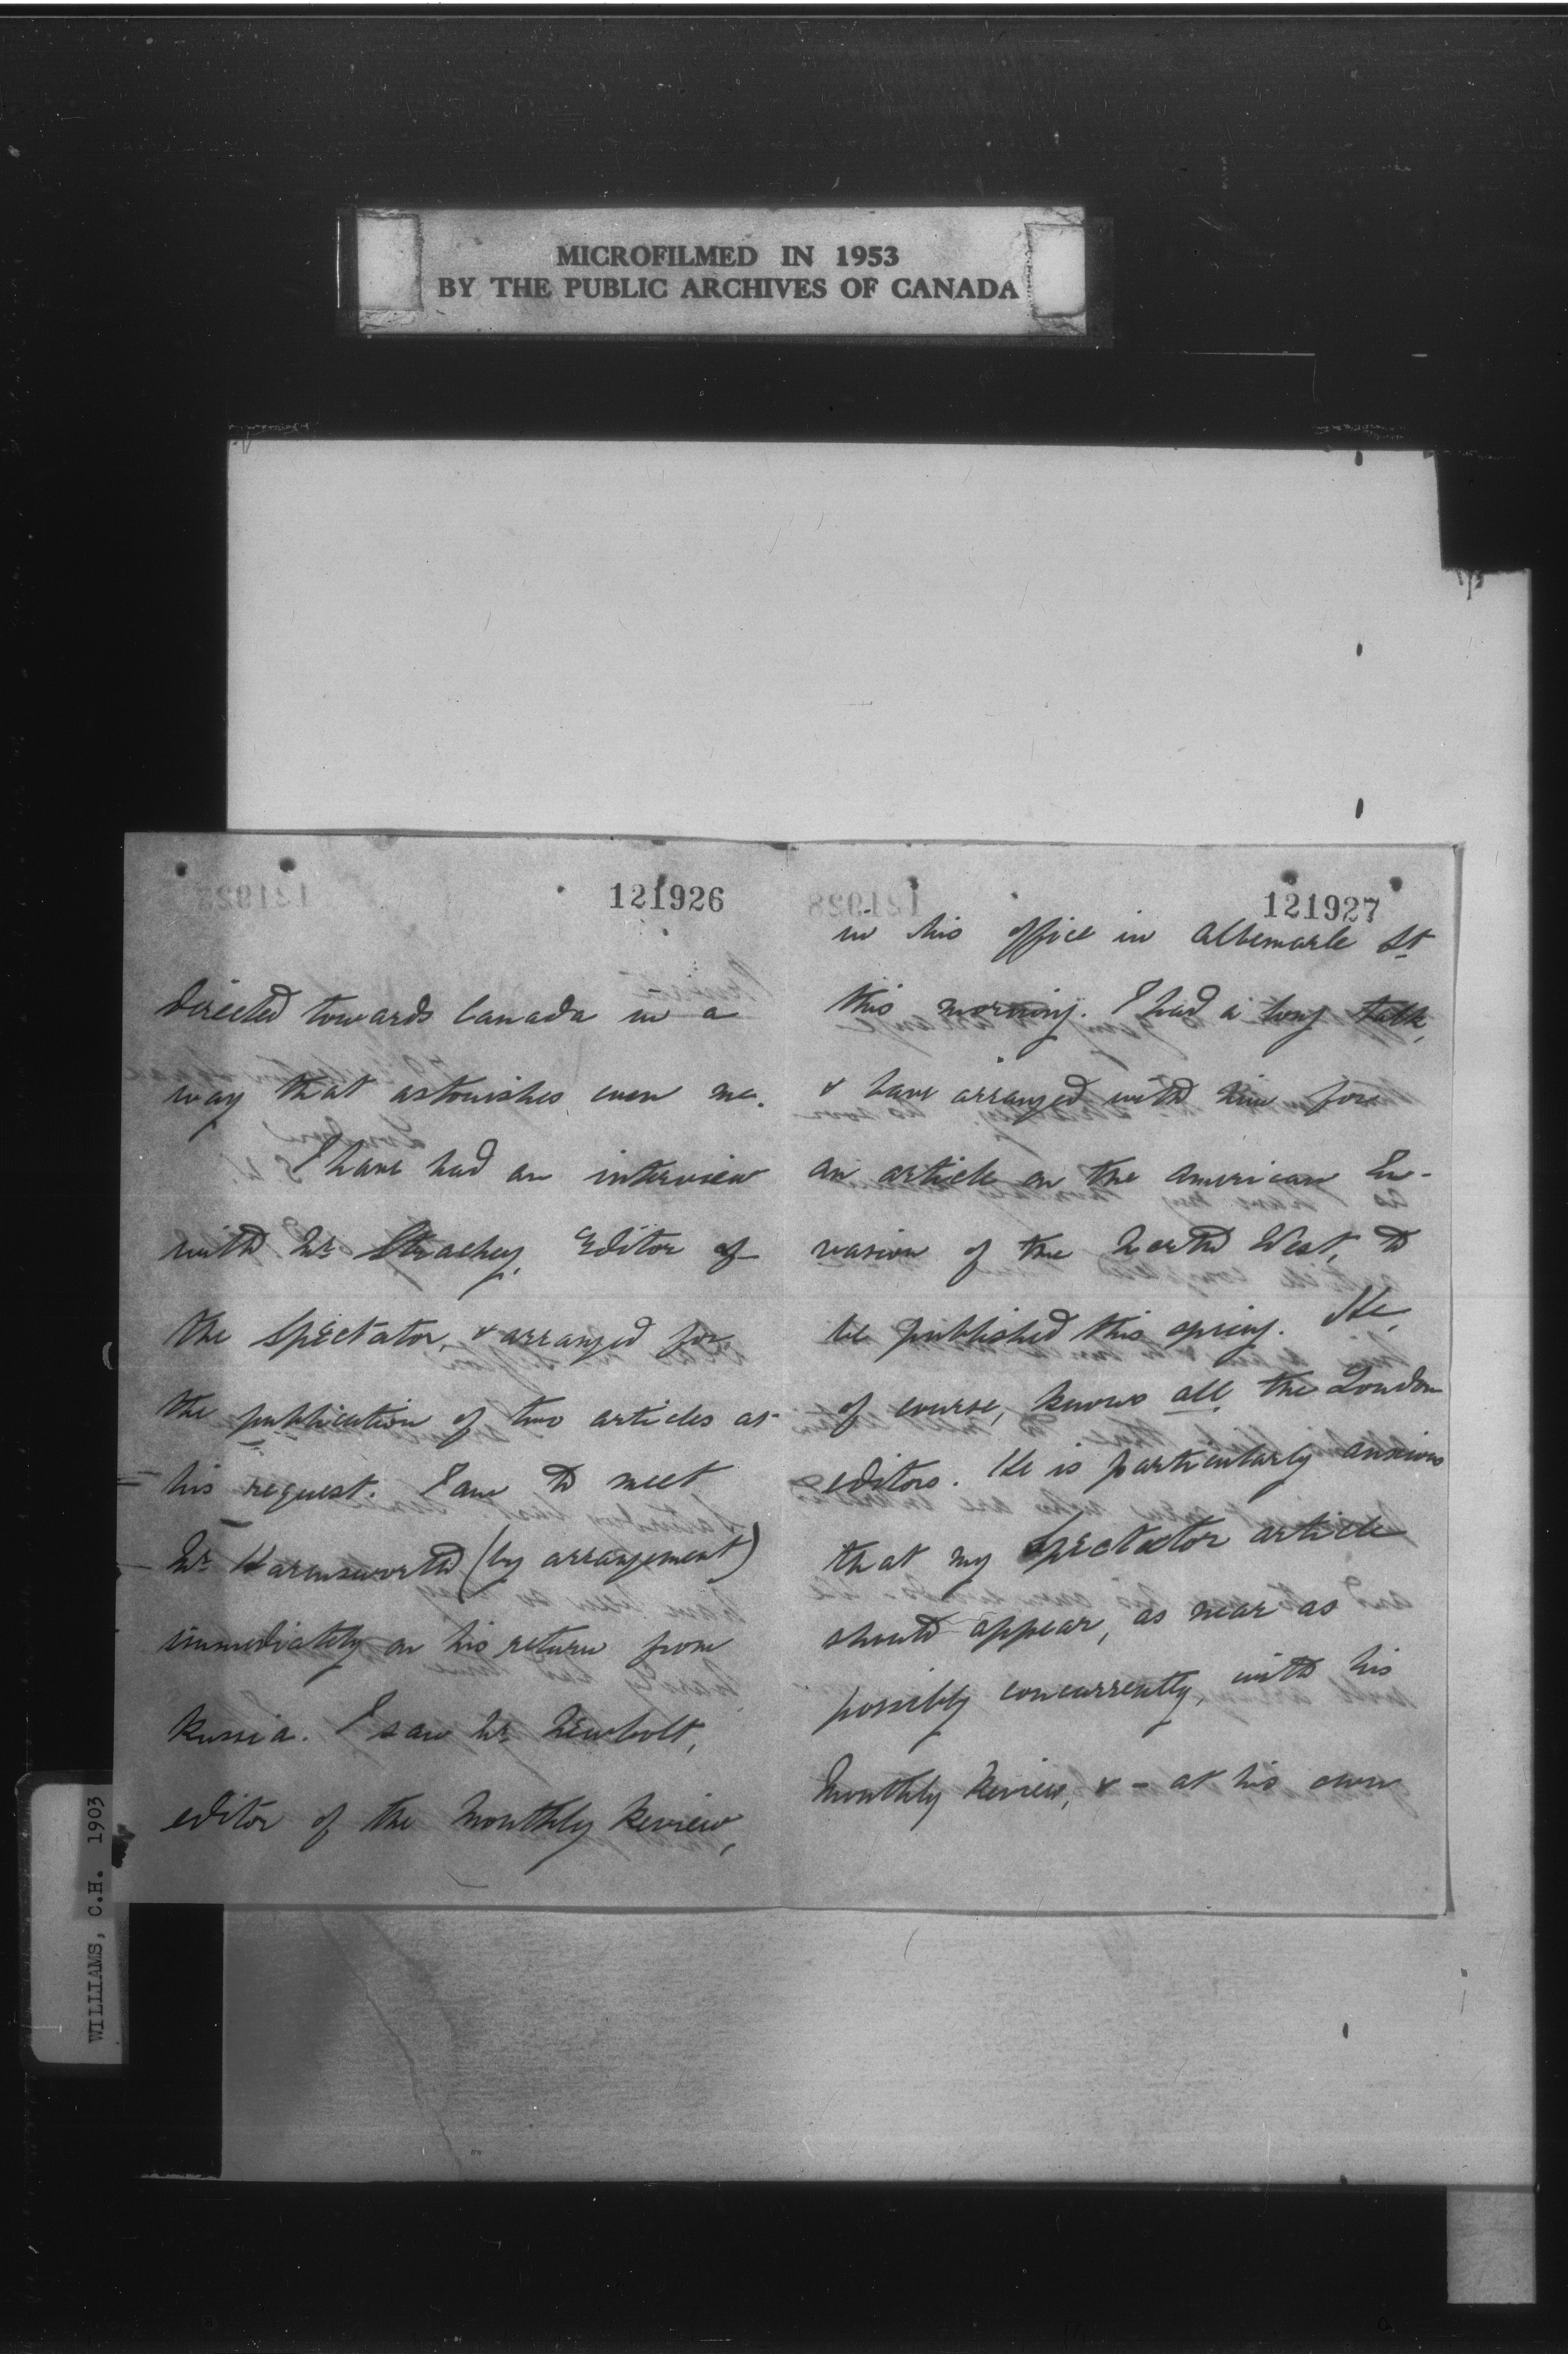 MICROFILMED IN 1953
BY THE PUBLIC ARCHIVES OF CANADA
121926
directed towards Canada in a
way that astonishes even me.
I have had an interview
with Mr. Strachey, Editor of
the Spectator, & arranged for
the publication of two articles at
his request. I am to meet
Mr. Harmsworth (by arrangement)
immediately on his return from
Russia. I saw Mr. Newbolt,
editor of the Monthly Review,
121927
in his office in Albemarle St
this morning. I had a long talk,
& have arranged with him for
an article on the American In-
vasion of the North West, to
be published this spring. He,
of course, knows all the London
editors. He is particularly anxious
that my Spectator article
should appear, as near as
possibly concurrently, with his
Monthly Review, & - at his own
WILLIAMS, C.H. 1903